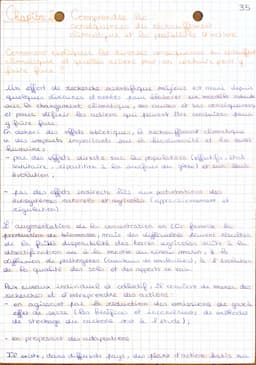 35
Chapitre Comprendre les
conséquences du réchauffement
climatique et les possibilités d'action
Comment
climatique et quelles actions peut on
faire face ?
Un effort de recherche scientifique majeur est mené depuis
quelques dizaines d'années pour élaborer un modèle
sur le changement climatique, ses causes et ses conséquences
et pour définir les actions qui peuvent être conduites pour
y faire face.
En dehors des effets abiotiques, le réchauffement climatique
a des impacts importants sur la biodiversité et la santé
humaine :
- par des effets directs sur les populations (effectifs, état
sanitaire, répartition à la surface du globe) et sur leur
évolution ;
- par des effets indirects liés aux perturbations des
écosystèmes naturels et agricoles (approvisionnement et
régulation)
L'augmentation de la concentration en CO2 favorise la
production de biomasse, mais des difficultés peuvent résulter
de la faible disponibilité des terres agricoles suite à la
désertification ou à la montée du niveau marin, à la
diffusion de pathogènes (causes de maladies), à l'évolution
de la qualité des sols et des apports en eau.
Aux niveaux individuel et collectif, il convient de mener des
recherches et d'entreprendre des actions :
- en agissant par la réduction des émissions de gaz à
effet de serre (les bénéfices et inconvénients de méthodes
de stockage du carbone sont à l'étude) ;
- en proposant des adaptations
dans différents pays, des plans d'actions basés sur